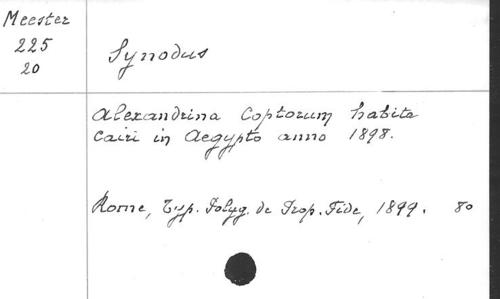 Meester
225
20
Synodus
Alexandrina Coptorum habita
Cairi in Aegypto anno 1898.
Rome, Typ. Polyg. de Prop. Fide, 1899. 8o